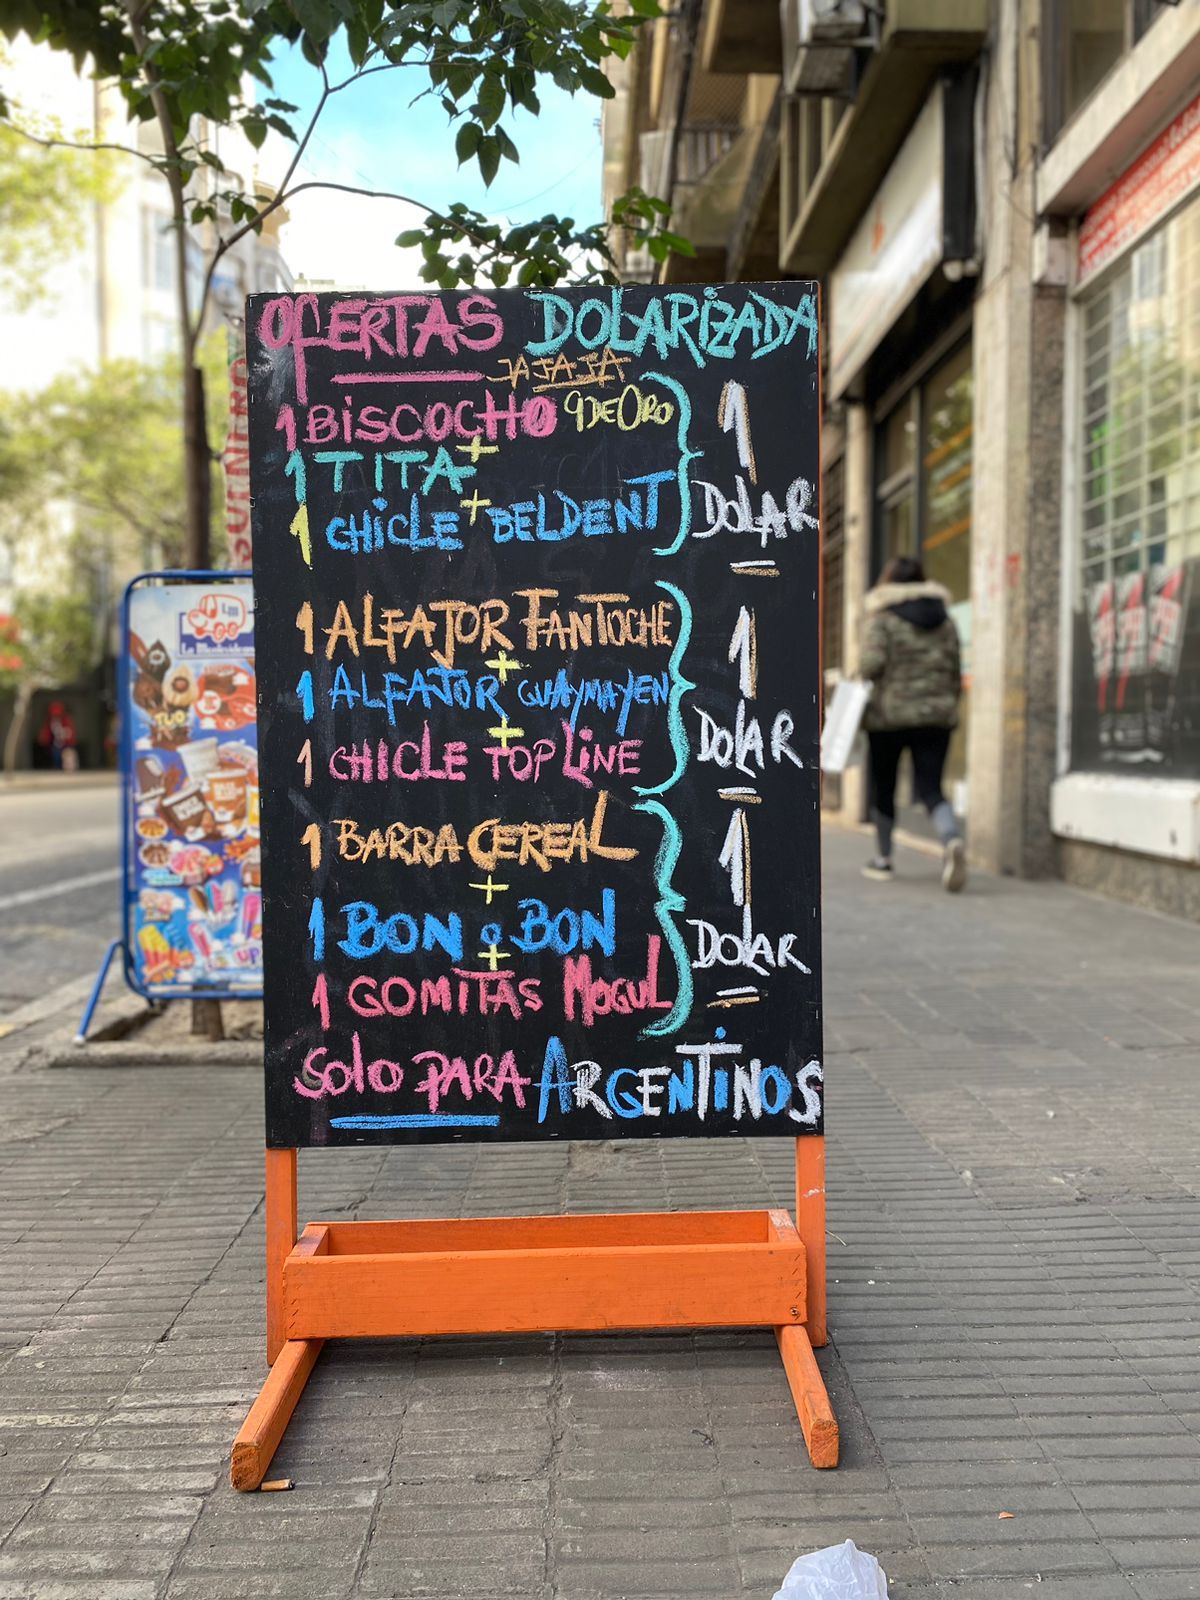 OFERTAS DOLARIZADA
JAJAJA
1 BISCOCHO 9 DE ORO
+
1 TITA
+
1 CHICLE BELDENT
1 DOLAR
1 ALFAJOR FANTOCHE
+
1 ALFAJOR GUAYMAYEN
+
1 CHICLE TOPLINE
1 DOLAR
1 BARRA CEREAL
+
1 BON o BON
+
1 GOMITAS MOGUL
1 DOLAR
Solo PARA ARGENTINOS